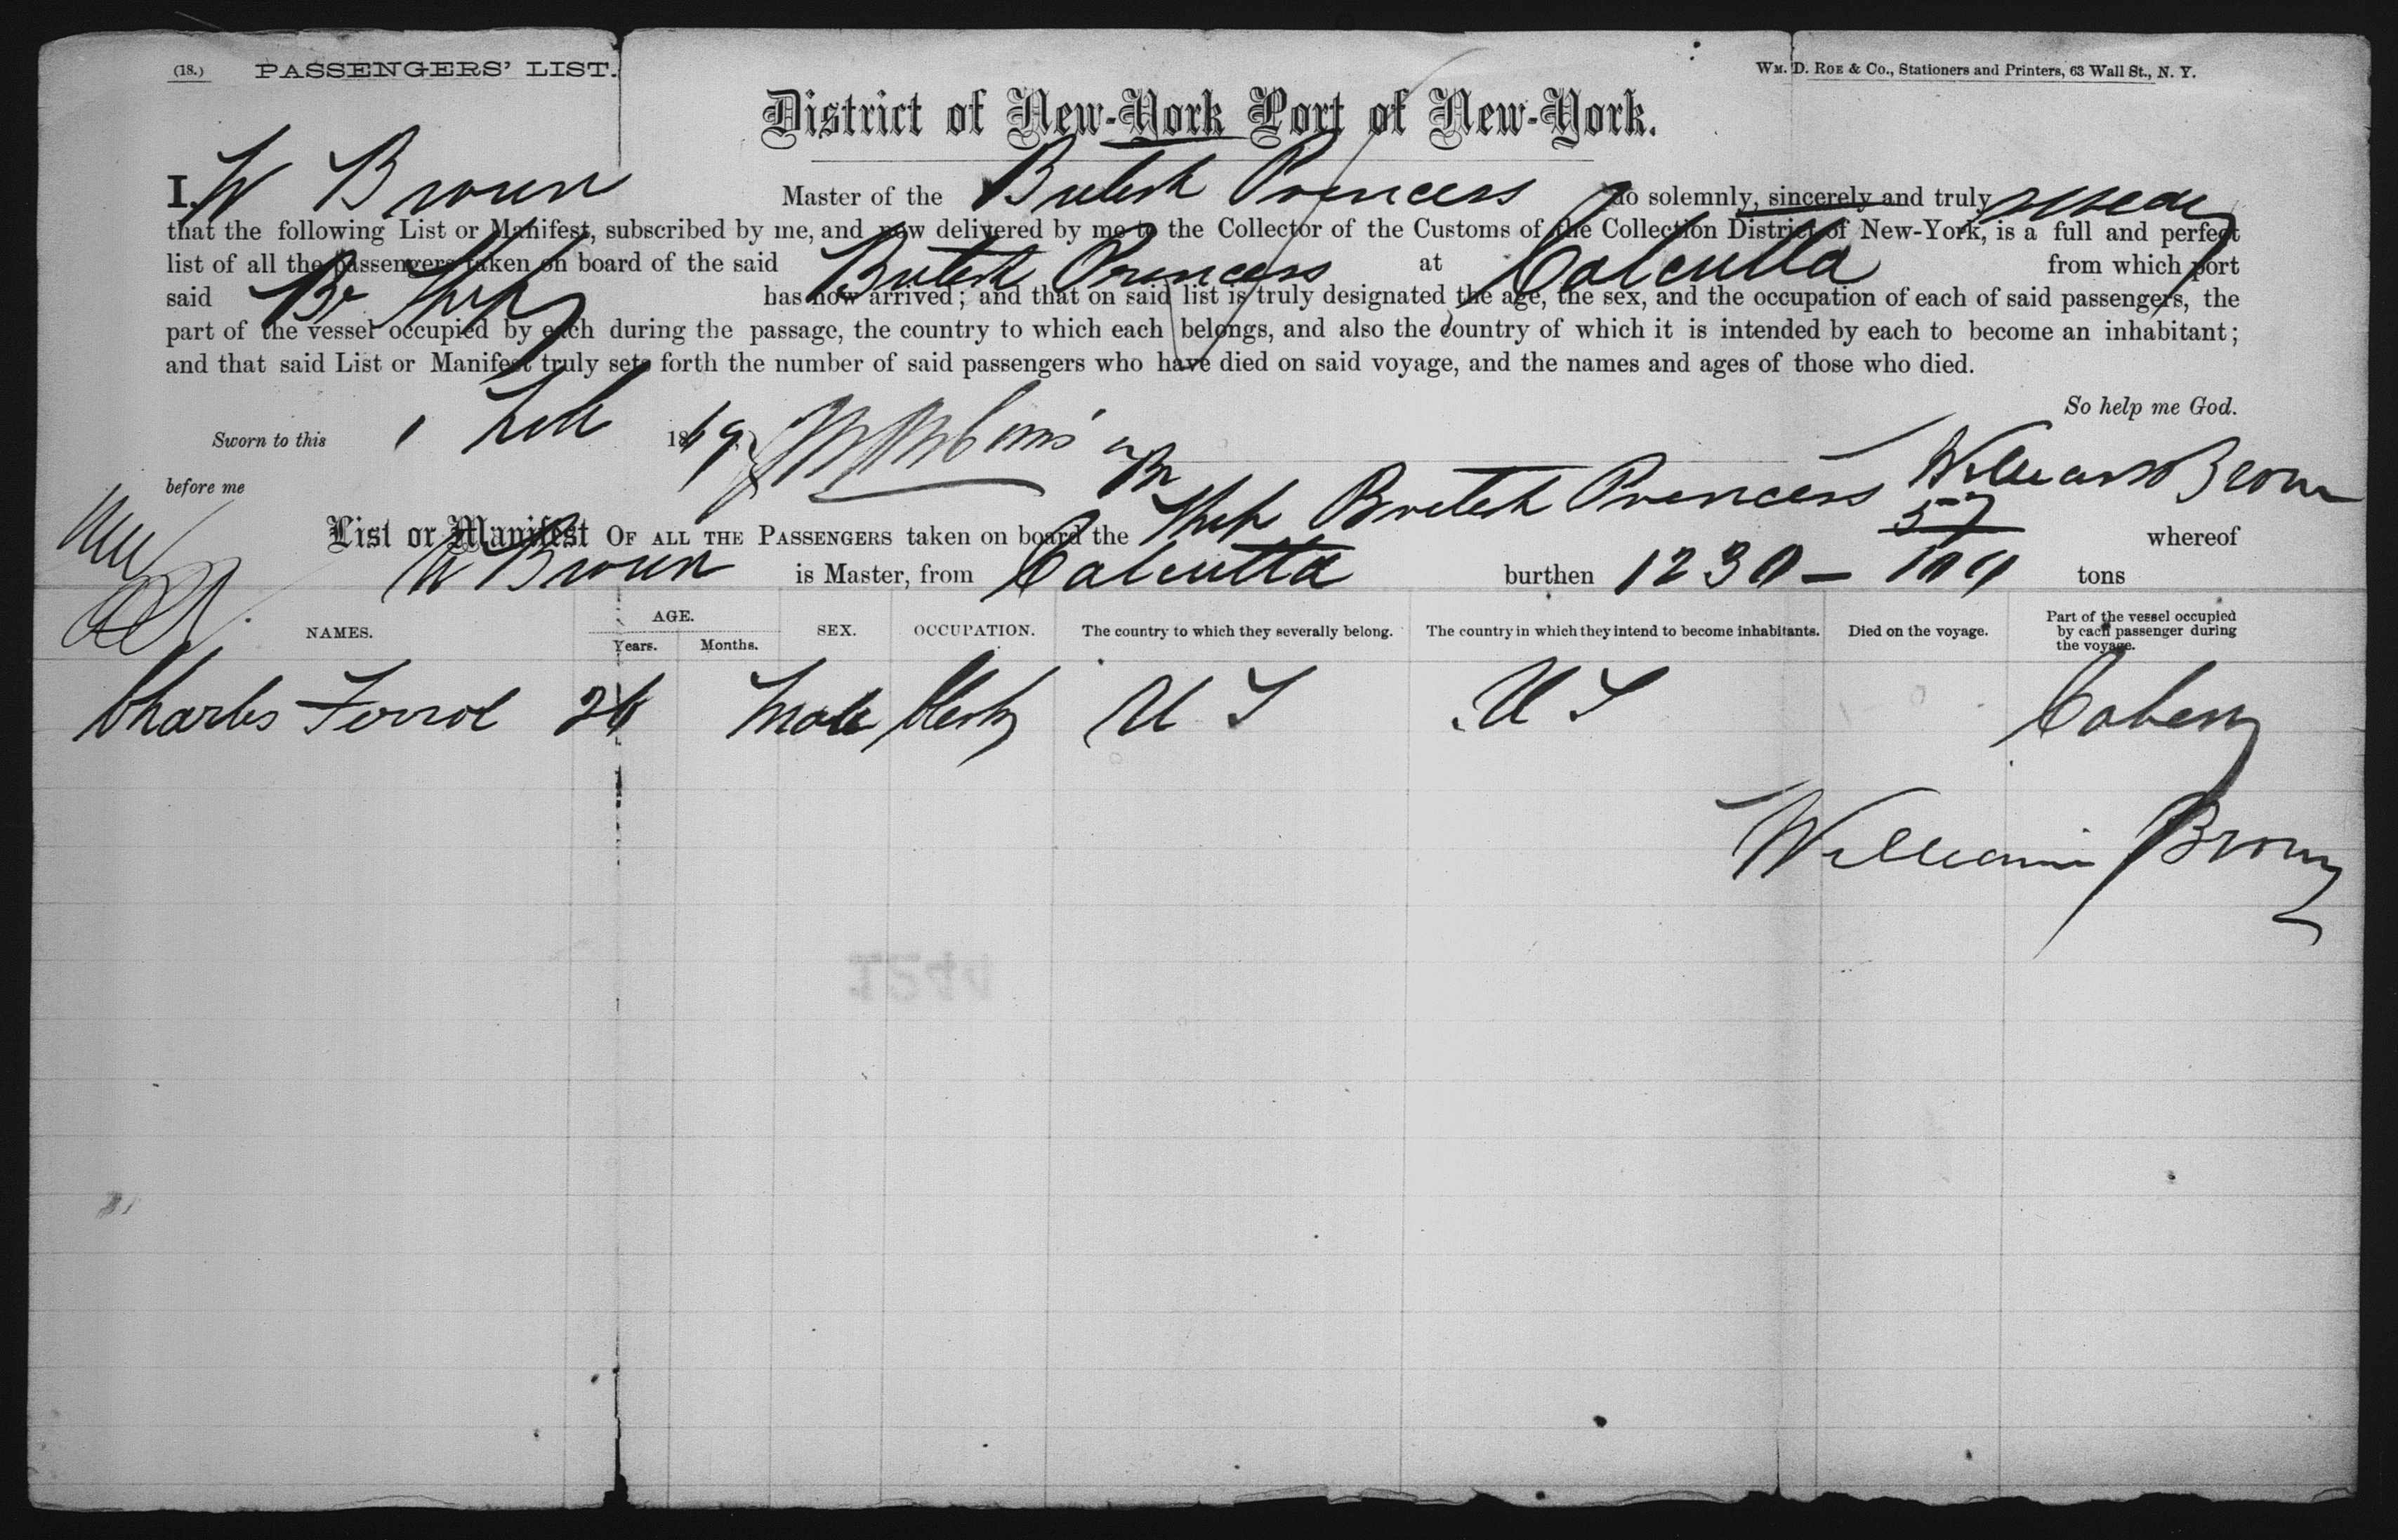 (18.) PASSENGERS' LIST. WM. D. ROE & CO., Stationers and Printers, 63 Wall St., N. Y.
District of New-York Port of New-York.
I. W Brown Master of the British Princess do solemnly, sincerely and truly swear
that the following List or Manifest, subscribed by me, and now delivered by me to the Collector of the Customs of the Collection District of New-York, is a full and perfect
list of all the passengers taken on board of the said British Princess at Calcutta from which port
said Br Ship has now arrived; and that on said list is truly designated the age, the sex, and the occupation of each of said passengers, the
part of the vessel occupied by each during the passage, the country to which each belongs, and also the country of which it is intended by each to become an inhabitant;
and that said List or Manifest truly sets forth the number of said passengers who have died on said voyage, and the names and ages of those who died.
So help me God.
Sworn to this 1 Feb 18
before me William Brown
List or Manifest OF ALL THE PASSENGERS taken on board the Ship British Princess whereof
W Brown is Master, from Calcutta burthen 1230 - 57 tons
NAMES. AGE. Years. Months. SEX. OCCUPATION. The country to which they severally belong. The country in which they intend to become inhabitants. Died on the voyage. Part of the vessel occupied by each passenger during the voyage.
Charles 26 Male U S U S Cabin
William Brown